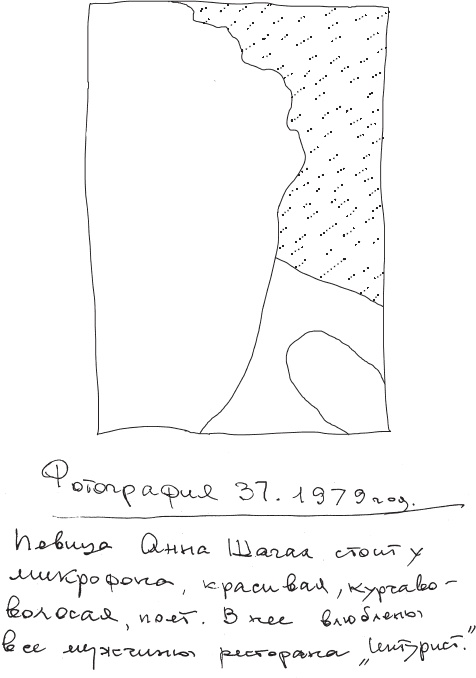 Фотография 37. 1979 год.
Певица Анна Шагал стоит у
микрофона, красивая, курчаво-
волосая, поёт. В нее влюблены
все мужчины ресторана „Интурист.”